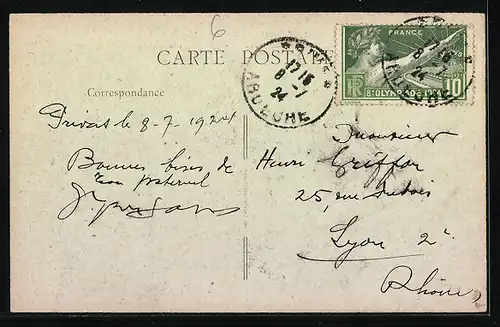 6
CARTE POSTALE
PRIVAS
17 15
8 -7
24
ARDECHE
FRANCE
RF
8E OLYMPIADE 1924
10
Correspondance
Privas 8-7-1924
Monsieur
Bonnes bises de
Henri Griffon
ton paternel
25, rue Dubois
Lyon 2e
Rhône